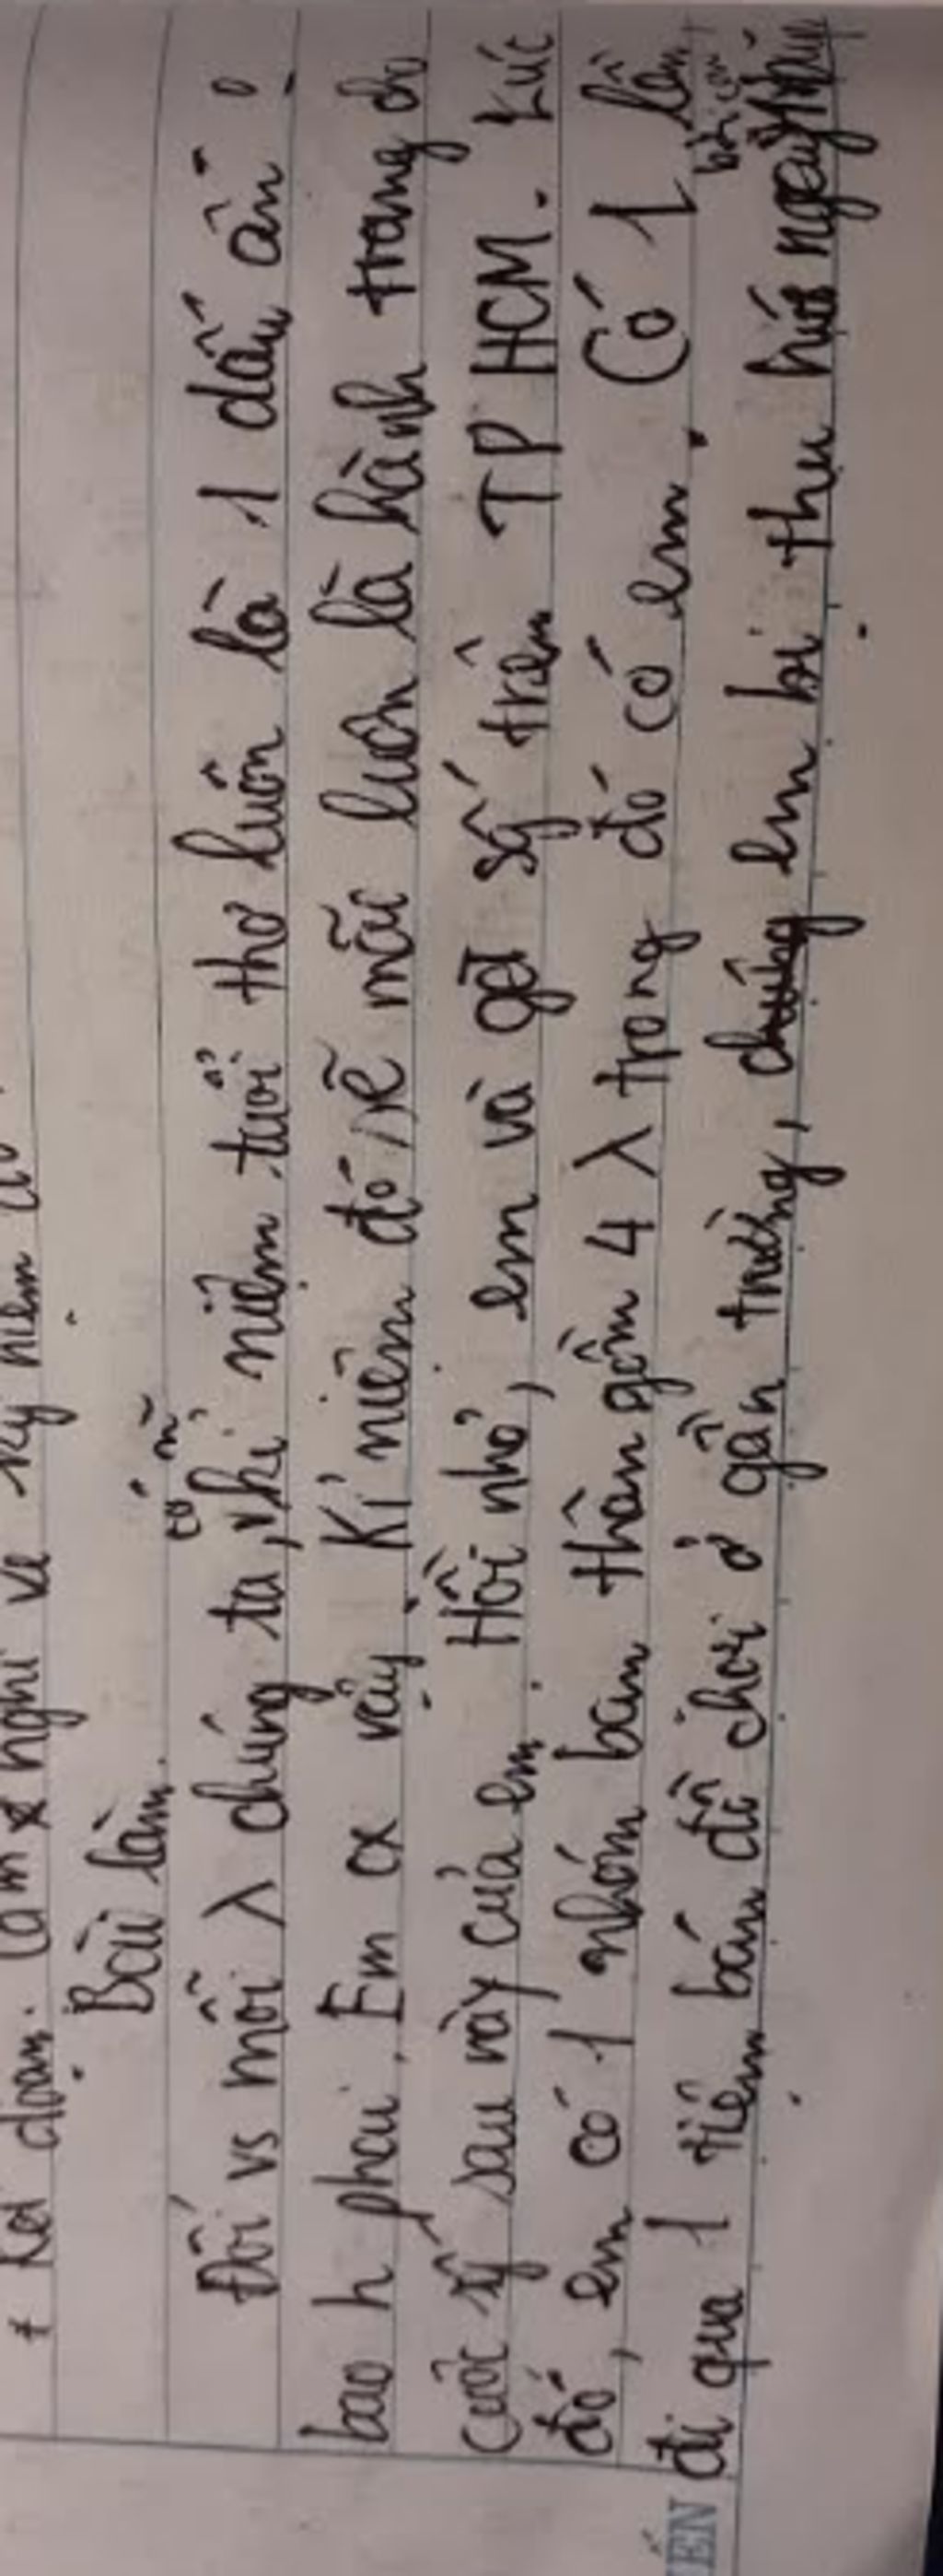 * Kết đoạn: Cảm nghĩ về kỷ niệm đó
Bài làm.
Đối vs mỗi λ chúng ta, kỉ niệm tuổi thơ luôn là 1 dấu ấn
bao h phai. Em α vậy. Kỉ niệm đó sẽ mãi luôn là hành trang cho
cuộc sỹ sau này của em. Hồi nhỏ, em và gđ sỹ trên TP HCM. Lúc
đó, em có 1 nhóm bạn thân gồm 4 λ trong đó có em. Có 1 lần,
đi qua 1 tiệm bán đồ chơi ở gần trường, chúng em bị thu hút ngay